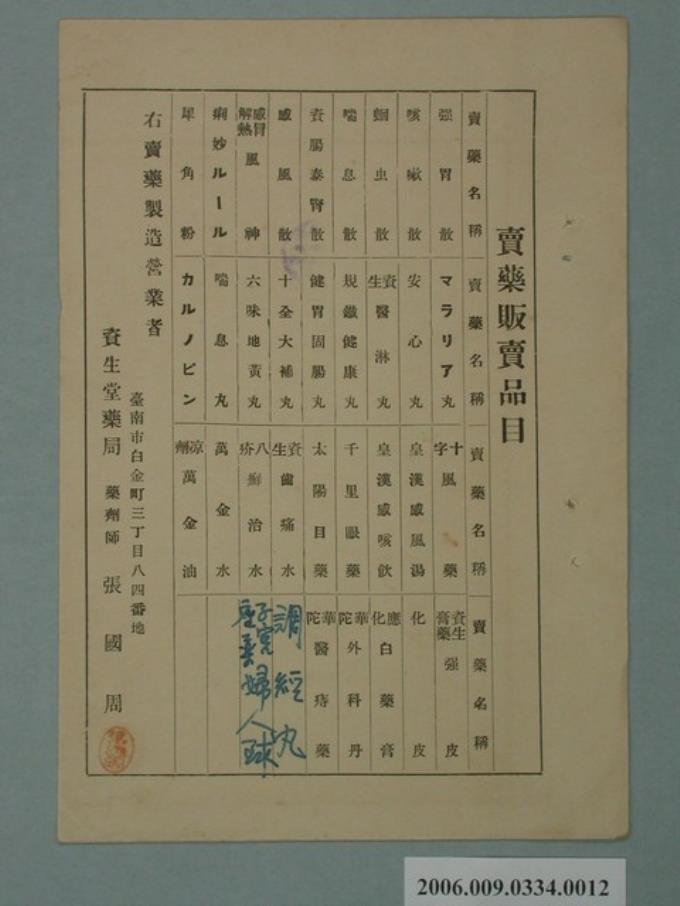 賣藥販賣品目
賣藥名稱
强胃散
咳嗽散
蛔虫散
喘息散
資腸泰腎散
感風散
感冒解熱風神
痢妙ルール
犀角粉
賣藥名稱
マラリア丸
安心丸
資生醫淋丸
規鐵健康丸
健胃固腸丸
十全大補丸
六味地黃丸
喘息丸
カルノピン
賣藥名稱
十字風藥
皇漢感風湯
皇漢感咳飲
千里眼藥
太陽目藥
資生齒痛水
八疥癬治水
萬金水
凉劑萬金油
賣藥名稱
資生膏藥强皮
化皮
應化白藥膏
華陀外科丹
華陀醫痔藥
調經丸
子宮婦人球
右賣藥製造營業者
臺南市白金町三丁目八四番地
資生堂藥局 藥劑師 張國周
2006.009.0334.0012